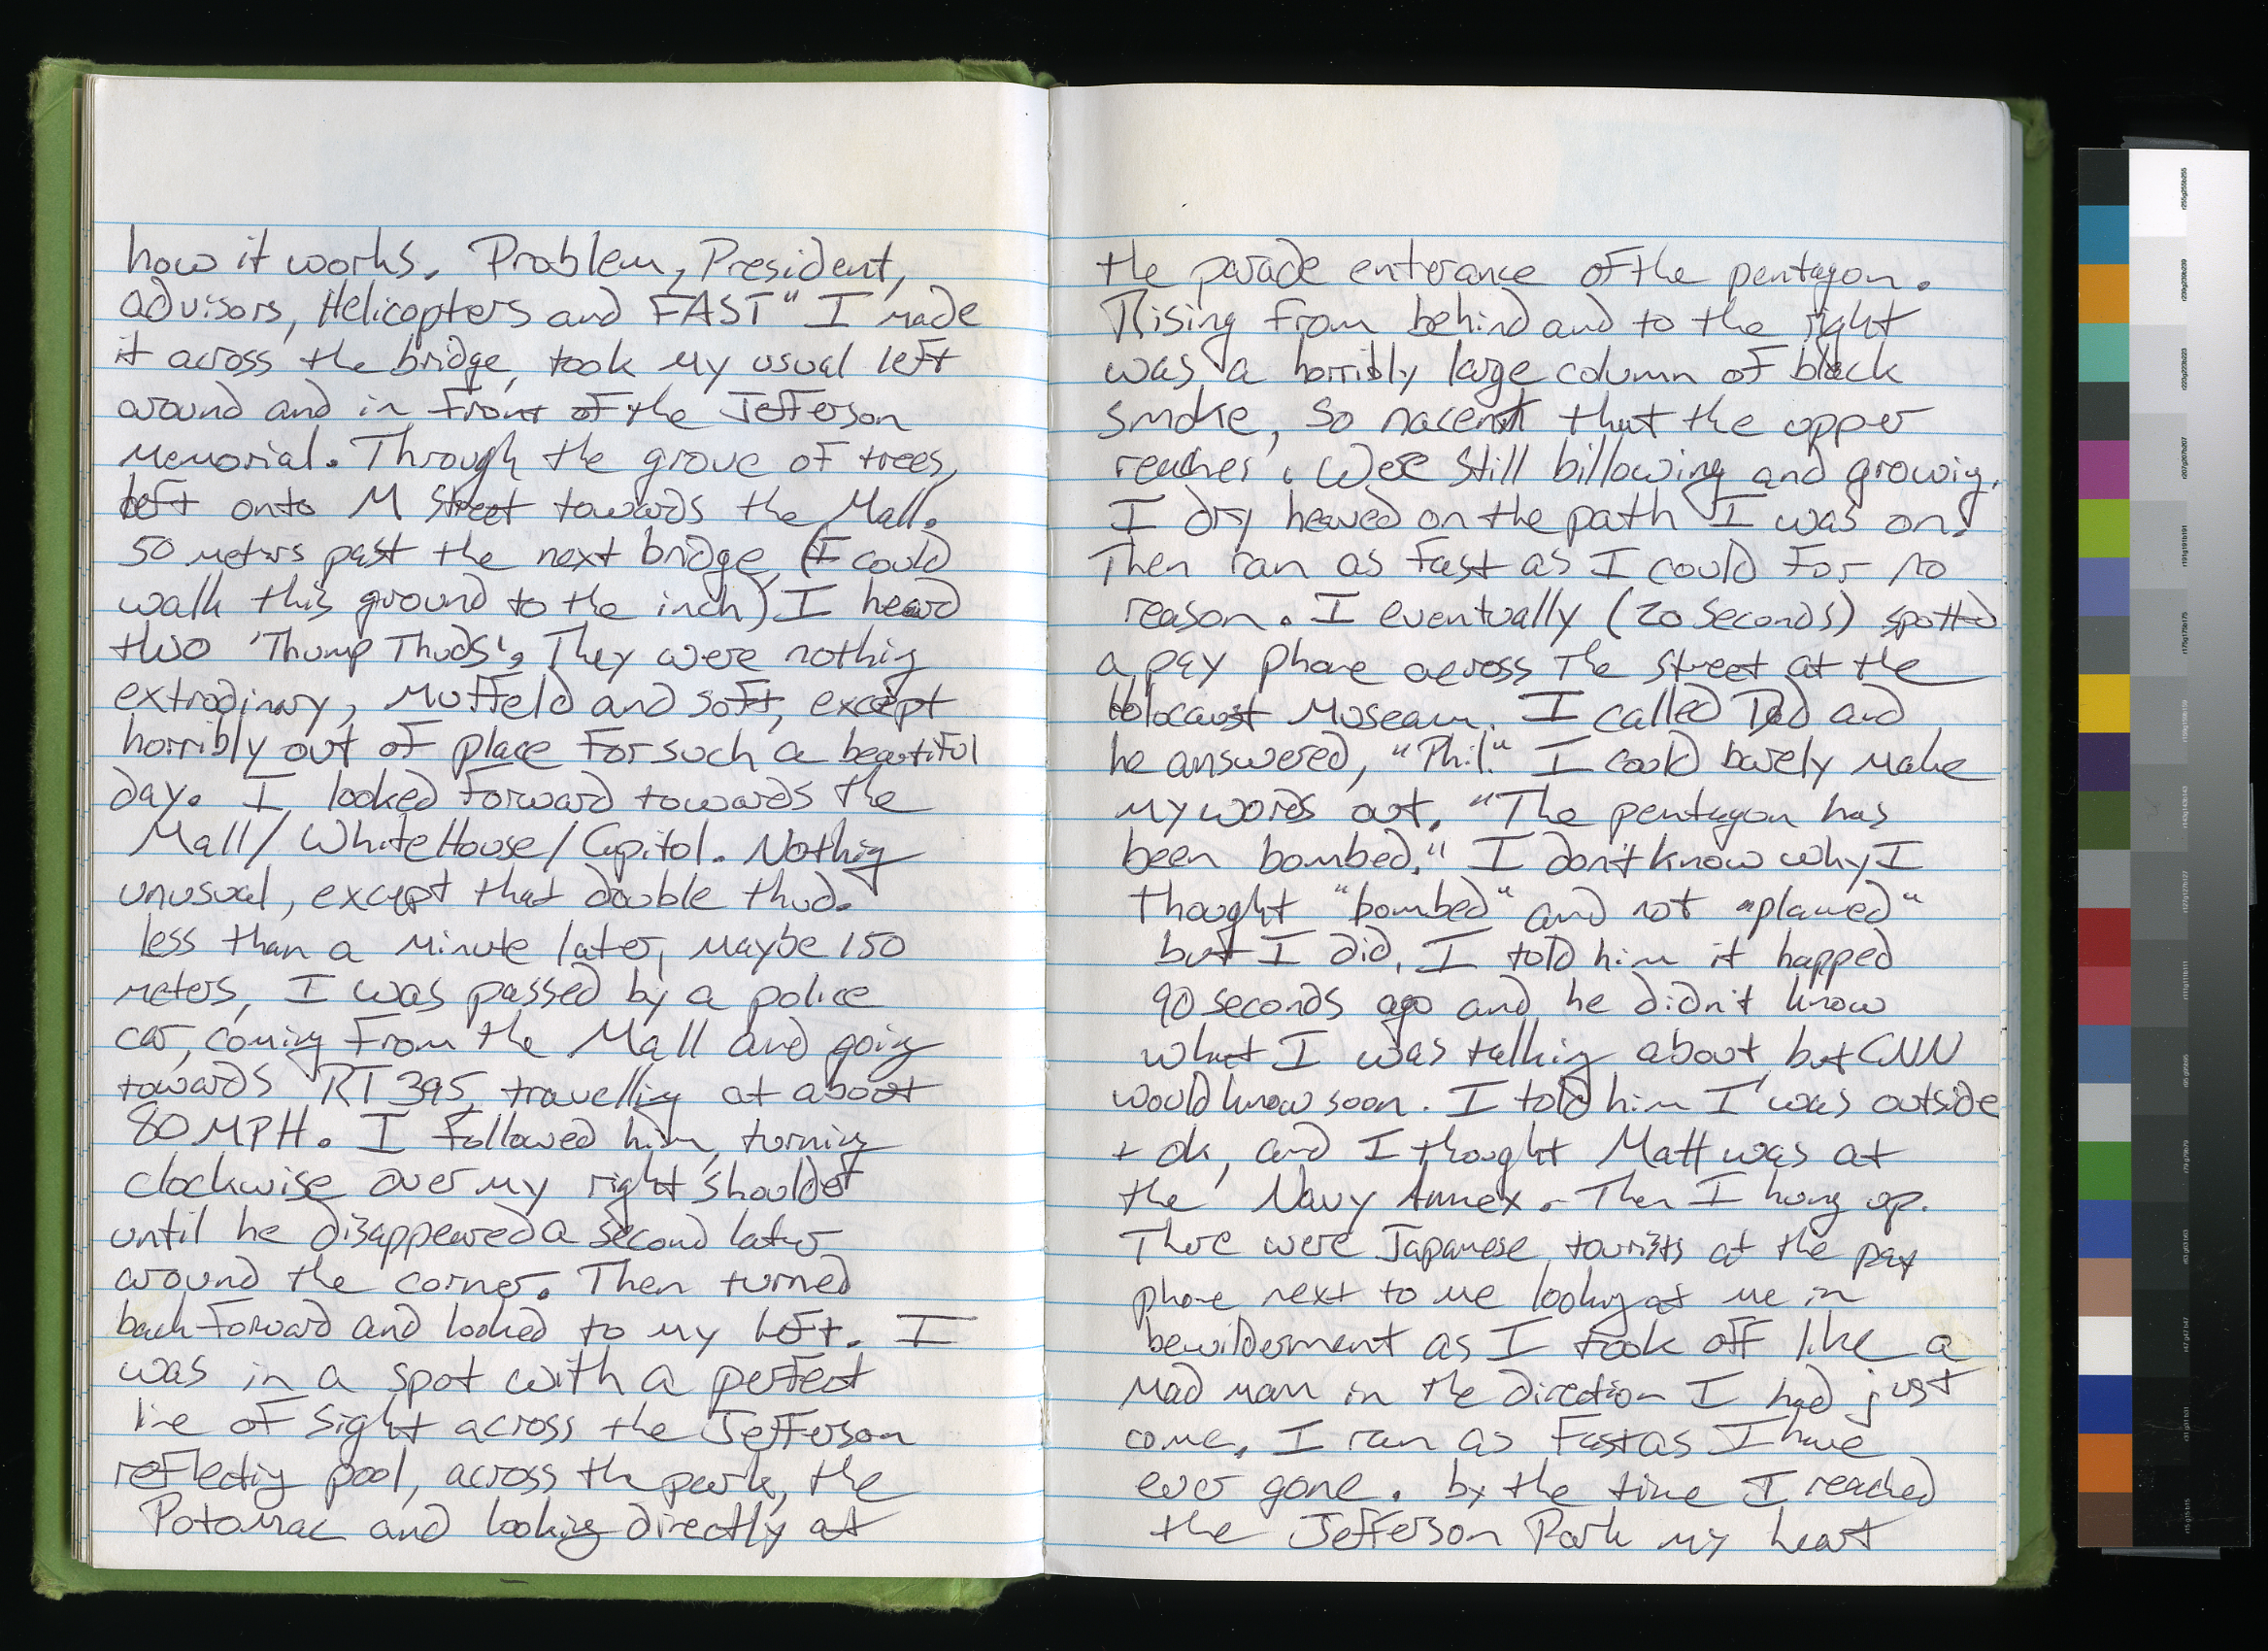 how it works. Problem, President,
advisors, Helicopters and FAST" I made
it across the bridge, took my usual left
around and in front of the Jefferson
Memorial. Through the grove of trees,
left onto M Street towards the Mall.
50 meters past the next bridge, (I could
walk this ground to the inch) I heard
two 'Thump Thuds', They were nothing
extrodinary, Muffeld and soft, except
horribly out of place for such a beautiful
day. I looked forward towards the
Mall/WhiteHouse/Capitol. Nothing
unusual, except that double thud.
less than a minute later, maybe 150
meters, I was passed by a police
car, coming from the Mall and going
towards RT 395, travelling at about
80 MPH. I followed him, turning
clockwise over my right shoulder
until he disappeared a second later
around the corner. Then turned
back forward and looked to my left. I
was in a spot with a perfect
line of sight across the Jefferson
reflecting pool, across the park, the
Potomac and looking directly at
the parade enterance of the pentagon.
Rising from behind and to the right
was a horribly large column of black
smoke, so nacent that the upper
reaches were still billowing and growig.
I dry heaved on the path I was on.
Then ran as fast as I could for no
reason. I eventually (20 seconds) spotted
a pay phone across the street at the
Holocaust Museam. I called Dad and
he answered, "Phil." I could barely make
my words out. "The pentagon has
been bombed." I don't know why I
thought "bombed" and not "planed"
but I did. I told him it happed
90 seconds ago and he didn't know
what I was talking about, but CNN
would know soon. I told him I was outside
+ ok, and I thought Matt was at
the Navy Annex. Then I hung up.
There were Japanese tourists at the pay
phone next to me looking at me in
bewilderment as I took off like a
mad man in the direction I had just
come. I ran as fast as I have
ever gone. by the time I reached
the Jefferson Park my heart